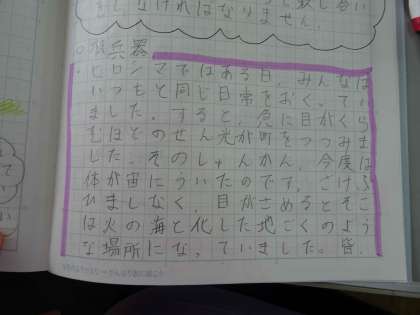 をしなければなりません。
○核兵器
ヒロシマではある日、みんなは
いつもと同じ日常をおくってい
ました。すると、急に目がくら
むほどのせん光が町をつつみま
した。そのしゅんかん、今度は
体が宙にういたのです。さけぶ
ひまもなく、目がさめるとそこ
は火の海と化した地ごくのよう
な場所になっていました。皆、